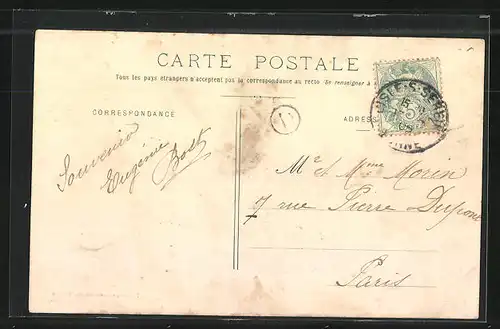 CARTE POSTALE
Tous les pays étrangers n'acceptent pas la correspondance au recto (Se renseigner à
CORRESPONDANCE
ADRES
Souvenir
Eugénie Bost
Mr et Mme Morin
7 rue Pierre Dupont
Paris